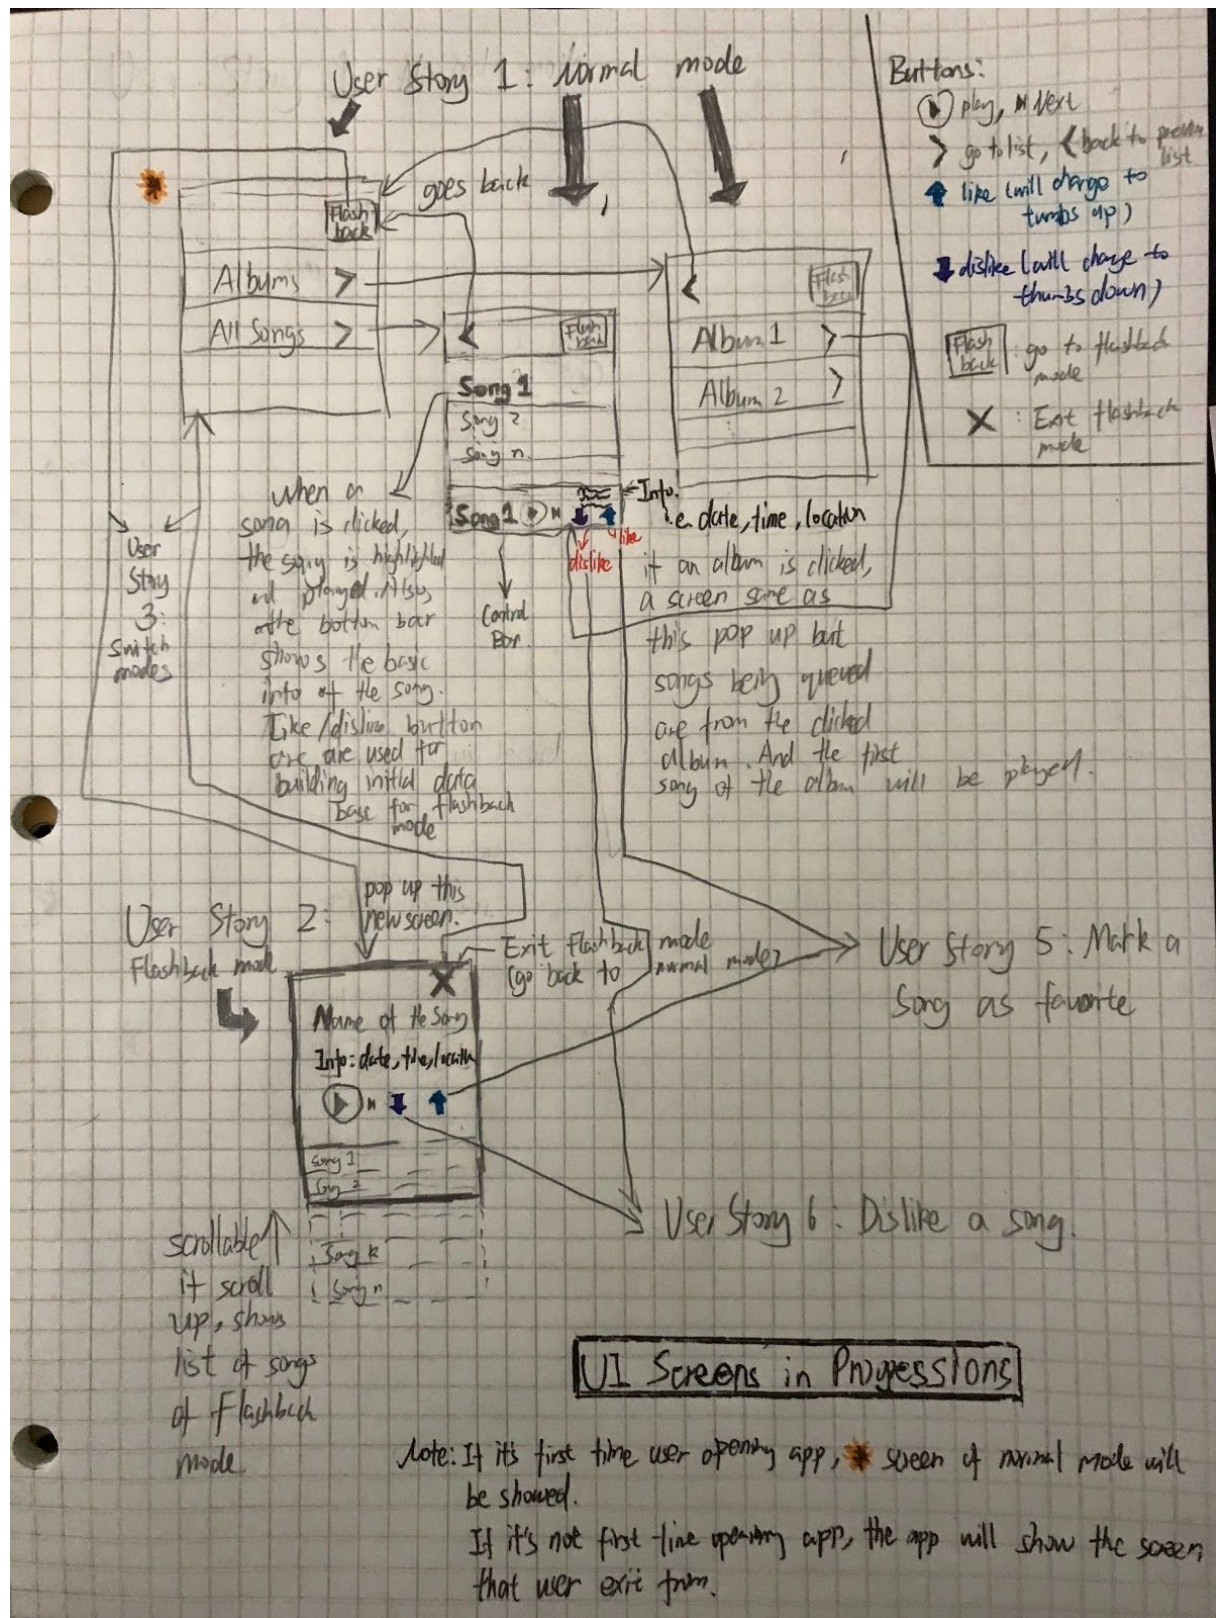 User Story 1: Normal mode
Buttons:
play, Next
> go to list, < back to previou list
like (will change to
tumbs up)
dislike (will change to
thumbs down)
Flash back : go to flashback
mode
X : Exit flashback
mode
goes back
Flash
back
Albums >
All Songs >
<
Flash
back
Song 1
Song 2
Song n
Song 1
Info.
i.e. date, time, location
like
dislike
Control
Bar.
<
Flash
back
Album 1 >
Album 2 >
when a
song is clicked,
the song is highlighted
and played. Also,
the bottom bar
shows the basic
info of the song.
Like/dislike burtton
are are used for
building initial data
base for flashback
mode
if an album is clicked,
a screen same as
this pop up but
songs being queued
are from the clicked
album. And the first
song of the album will be played.
User
Stoy
3:
Switch
modes
User Story 2:
Flashback mode
pop up this
new screen.
X
Exit Flashback mode
(go back to normal mode)
Name of the Song
Info: date, time, location
Song 1
Song 2
Song k
Song n
scrollable
if scroll
up, shows
list of songs
of Flashback
mode
User Story 5: Mark a
Song as favorite
User Story 6: Dislike a song.
UI Screens in Progessions
Note: If it's first time user opening app, screen of normal mode will
be showed.
If it's not first-time opening app, the app will show the screen
that user exit from.